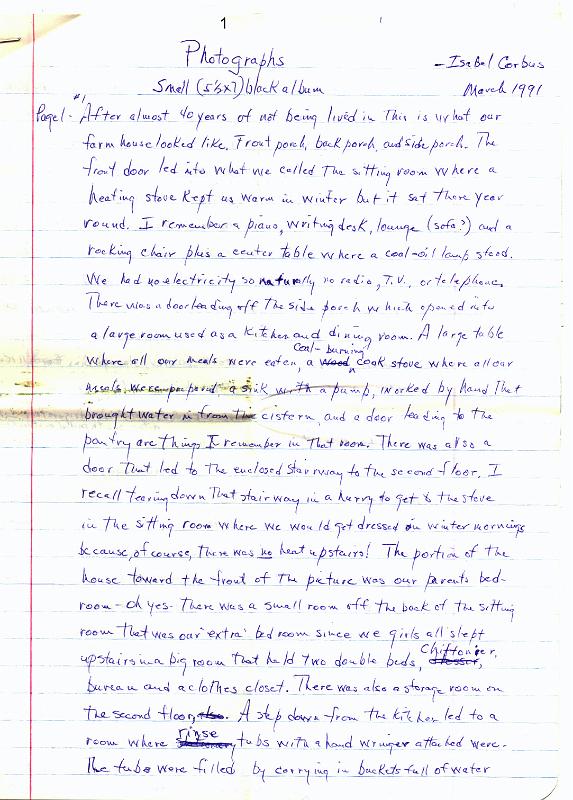 1
Photographs
- Isabel Corbus
Small (5½x7) black album
March 1991
Page 1 - #1 After almost 40 years of not being lived in This is what our
farm house looked like. Front porch, back porch, and side porch. The
front door led into what we called The sitting room where a
heating stove kept us warm in winter but it sat there year
round. I remember a piano, writing desk, lounge (sofa?) and a
rocking chair plus a center table where a coal-oil lamp stood.
We had no electricity so naturally no radio, T.V., or telephone.
There was a door leading off the side porch which opened into
a large room used as a kitchen and dining room. A large table
where all our meals were eaten, a wood coal-burning cook stove where all our
meals were prepared a sink with a pump, worked by hand That
brought water in from the cistern, and a door leading to the
pantry are things I remember in That room. There was also a
door that led to the enclosed stairway to the second floor. I
recall tearing down That stairway in a hurry to get to the stove
in the sitting room where we would get dressed on winter mornings
because, of course, there was no heat upstairs! The portion of the
house toward the front of The picture was our parents bed-
room - oh yes - There was a small room off the back of the sitting
room that was our "extra" bed room since we girls all slept
upstairs in a big room that held two double beds, dresser, Chiffonier,
bureau and a clothes closet. There was also a storage room on
the second floor, also. A step down from the kitchen led to a
room where rinse tubs with a hand wringer attached were.
The tubs were filled by carrying in buckets full of water